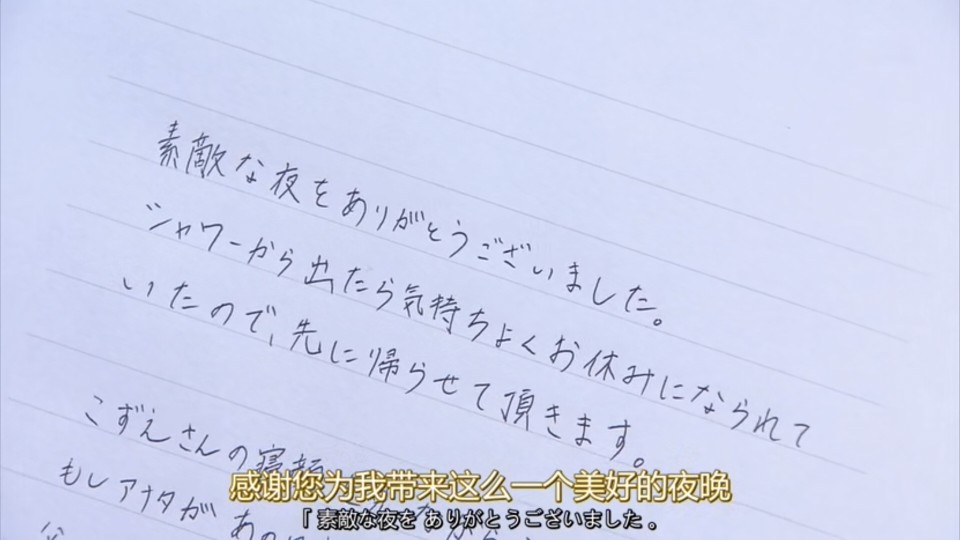 素敵な夜をありがとうございました。
シャワーから出たら気持ちよくお休みになられて
いたので、先に帰らせて頂きます。
こずえさんの寝顔
もしアナタが あの
感谢您为我带来这么一个美好的夜晚
「 素敵な夜を ありがとうございました 。